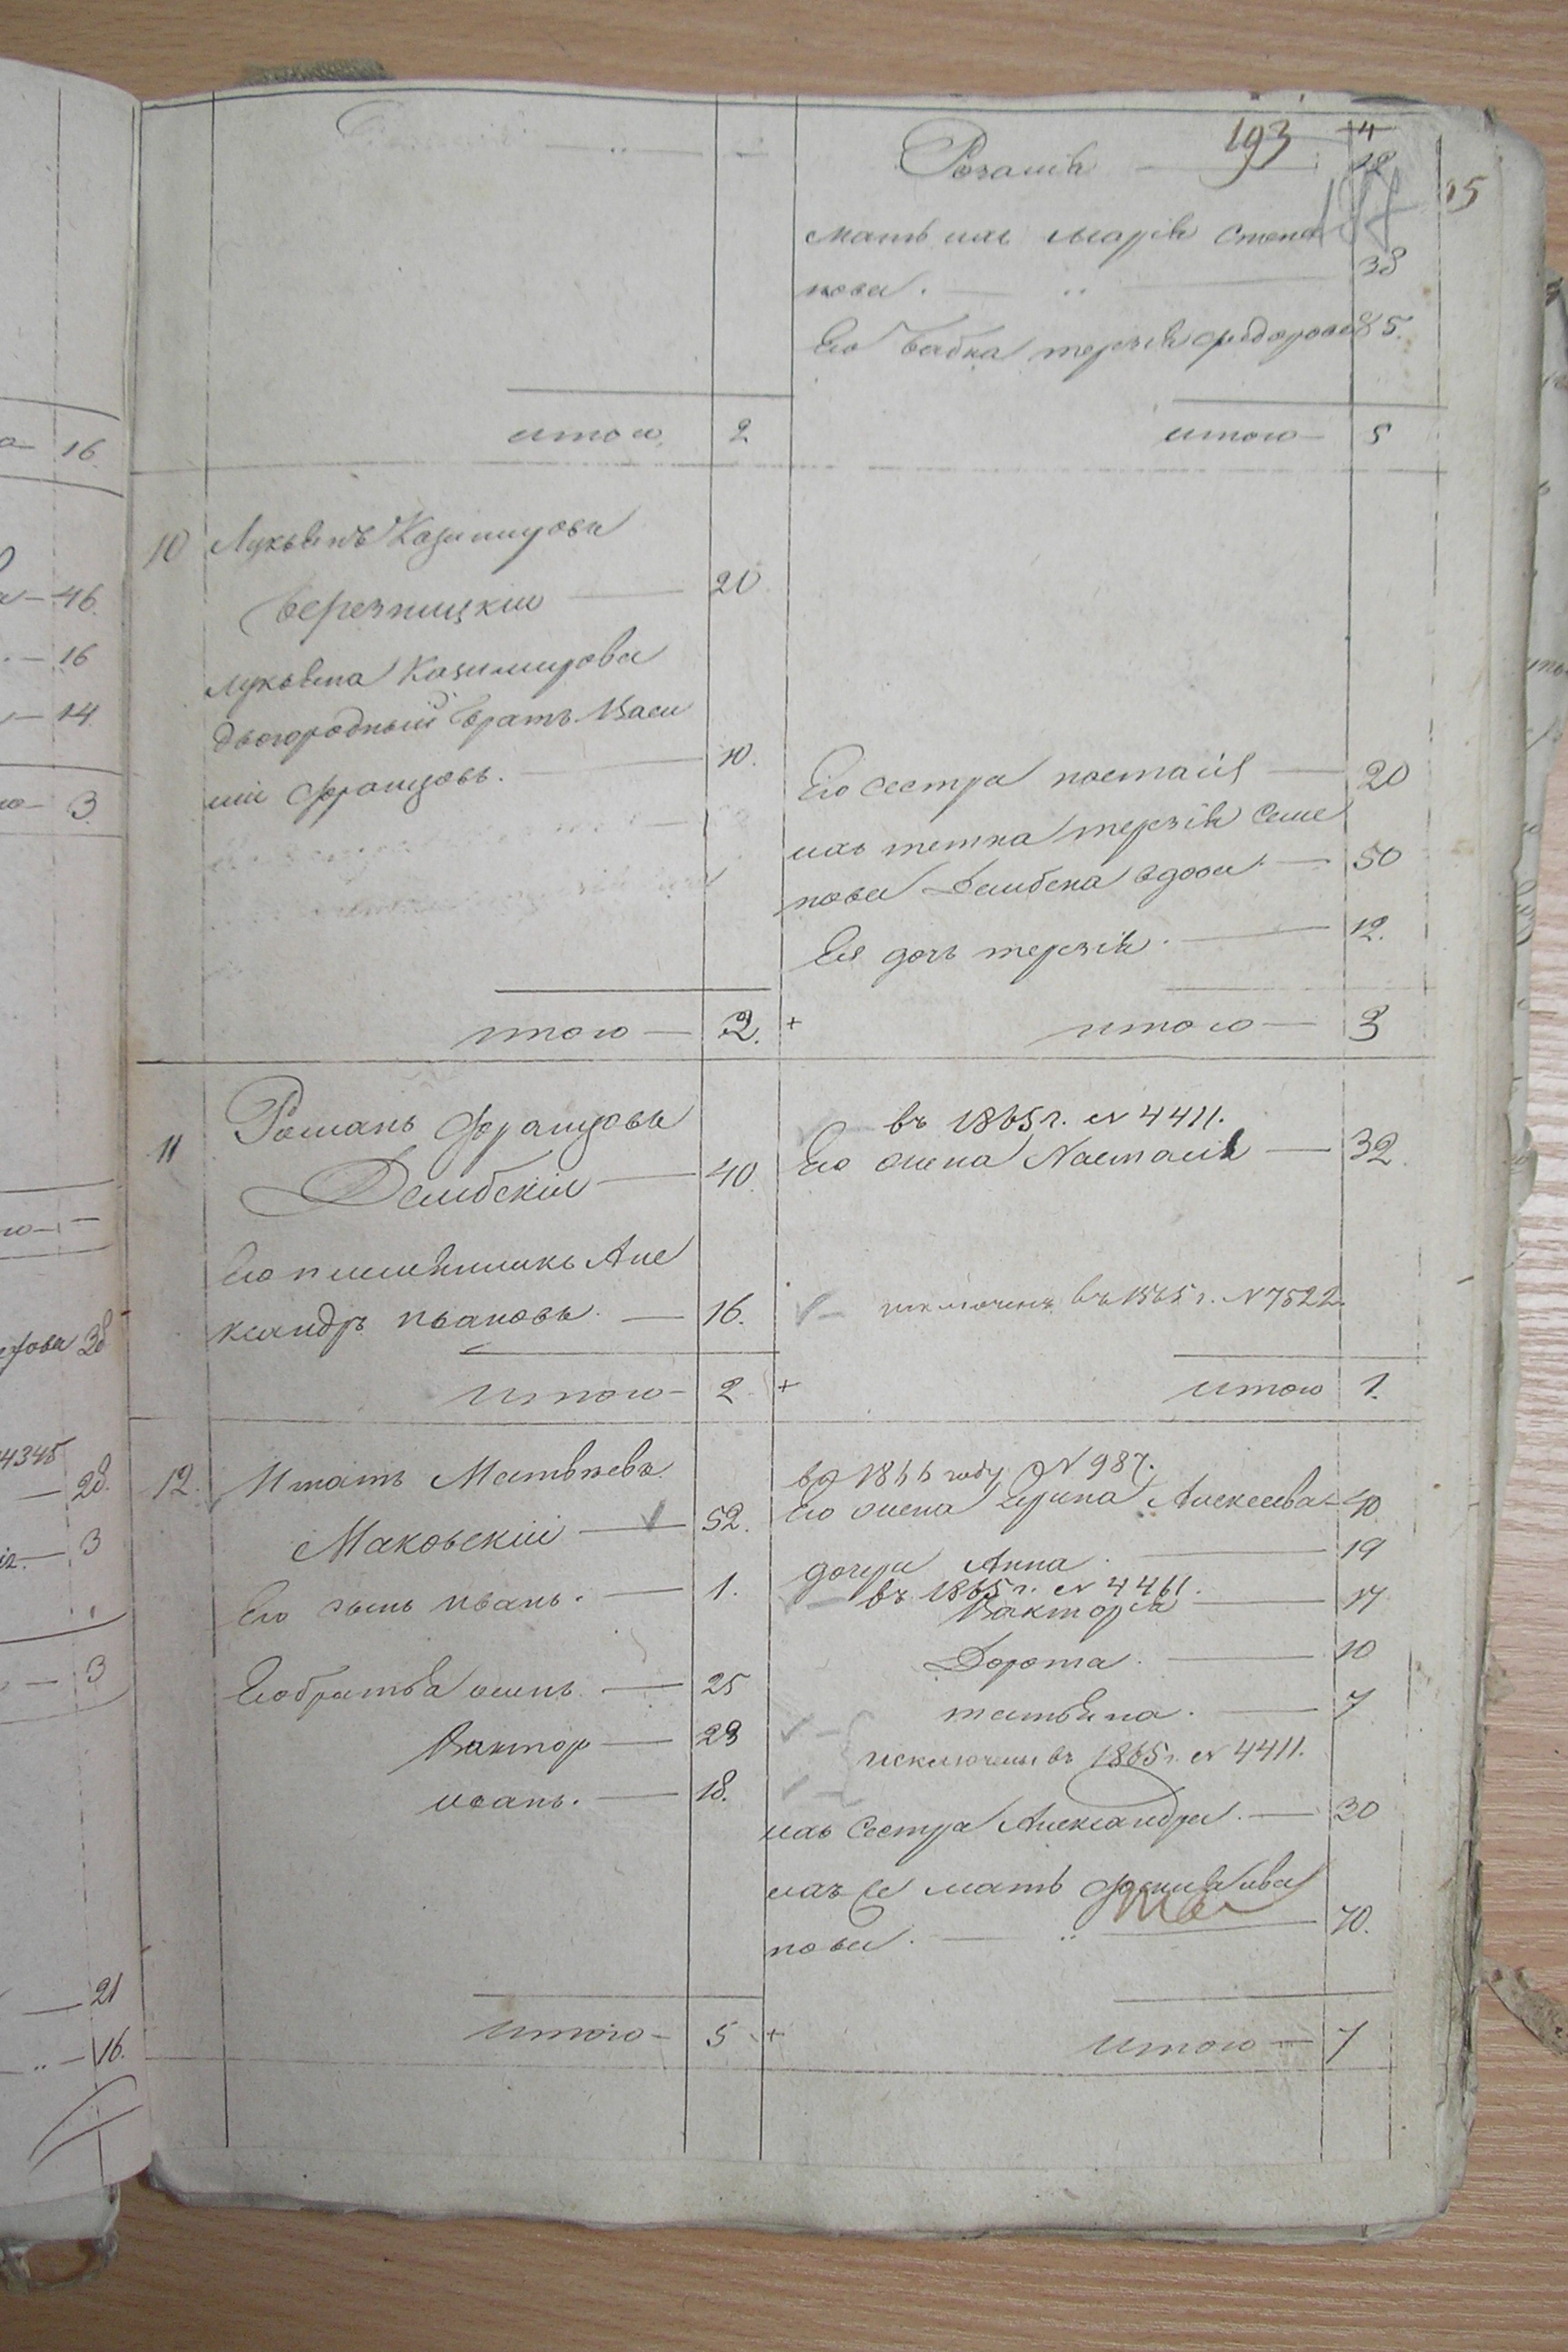 193
4
Розалія — 12
15
мать ихъ Марія Степа
нова. — 38
Его бабка терезія Федорова 85.
итого 2
итого — 5
10 Лукьянъ Казимировъ
Березницкій — 20
Лукьяна Казимирова
двоюродный братъ Васи
лій Францовъ. — 10.
Его сестра настасія — 20
ихъ тетка терезія Семе
нова Дембска вдова — 50
Ея дочь терезія. — 12.
итого — 2. +
итого — 3
11 Романъ Францовъ
Дембскій — 40
въ 1865 г. № 4411.
Его жена Настасія — 32
Его племянникъ Але
ксандръ ивановъ. — 16.
исключенъ въ 1865 г. № 7522.
итого — 2 +
итого 1.
12. Игнатъ Матвѣевъ
Маковскій — 52.
въ 1866 году № 987.
Его жена Ирина Алексеева — 40
дочери Анна. — 19
въ 1865 г. № 4461.
Викторія — 17
Его сынъ иванъ. — 1.
Дорота. — 10
Его братья осипъ — 25
татьяна. — 7
Виктор — 23
исключены въ 1865 г. № 4411.
иванъ. — 18.
ихъ Сестра Александра. — 30
ихъ мать Ива
нова. — 70.
итого — 5 +
итого — 7
16
46
16
14
3
38
4345
28.
3
3
21
16.